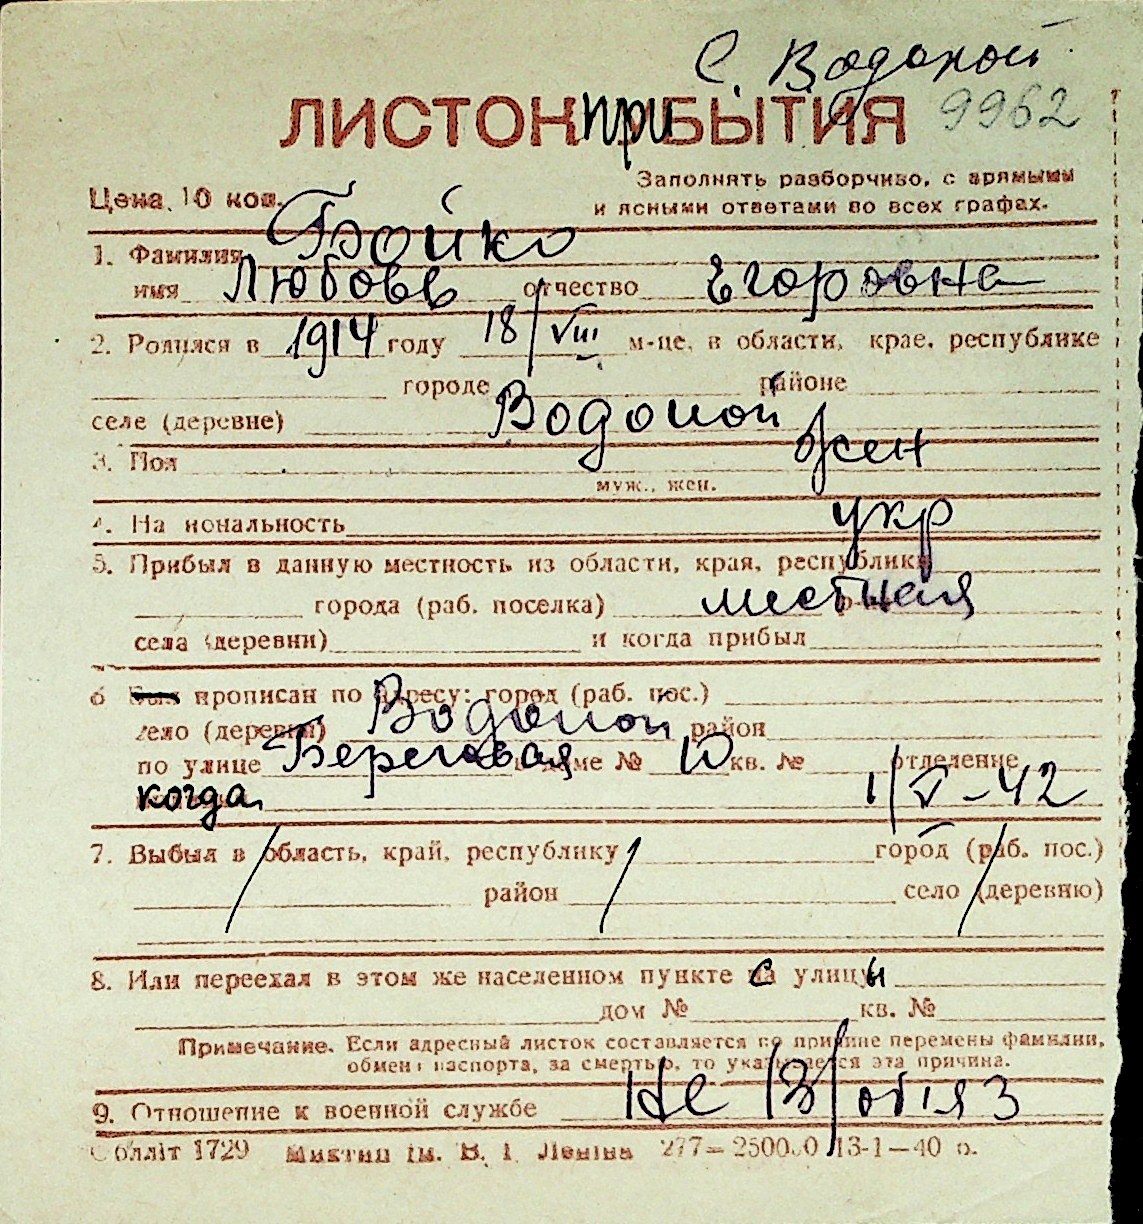 с. Водопой
ЛИСТОК при БЫТИЯ 9962
Заполнять разборчиво, с прямыми
Цена 10 коп.
и ясными ответами во всех графах.
1. Фамилия Бойко
имя Любовь отчество Егоровна
2. Родился в 1914 году 18/VIII м-це, в области, крае, республике
городе районе
селе (деревне) Водопой
3. Пол жен
муж., жен.
4. На иональность укр
5. Прибыл в данную местность из области, края, республики
города (раб. поселка) местная
села (деревни) и когда прибыл
6 Был прописан по адресу: город (раб. пос.)
село (деревня) Водопой район
по улице Береговая в доме № 10 кв. № отделение
когда 1/V-42
7. Выбыл в область, край, республику город (раб. пос.)
район село (деревню)
8. Или переехал в этом же населенном пункте с улицы
дом № кв. №
Примечание. Если адресный листок составляется по причине перемены фамилии,
обмена паспорта, за смертью, то указывается эта причина.
9. Отношение к военной службе не в/обяз
Облліт 1729 ім. В. І. Леніна 277—250000 13-1—40 р.